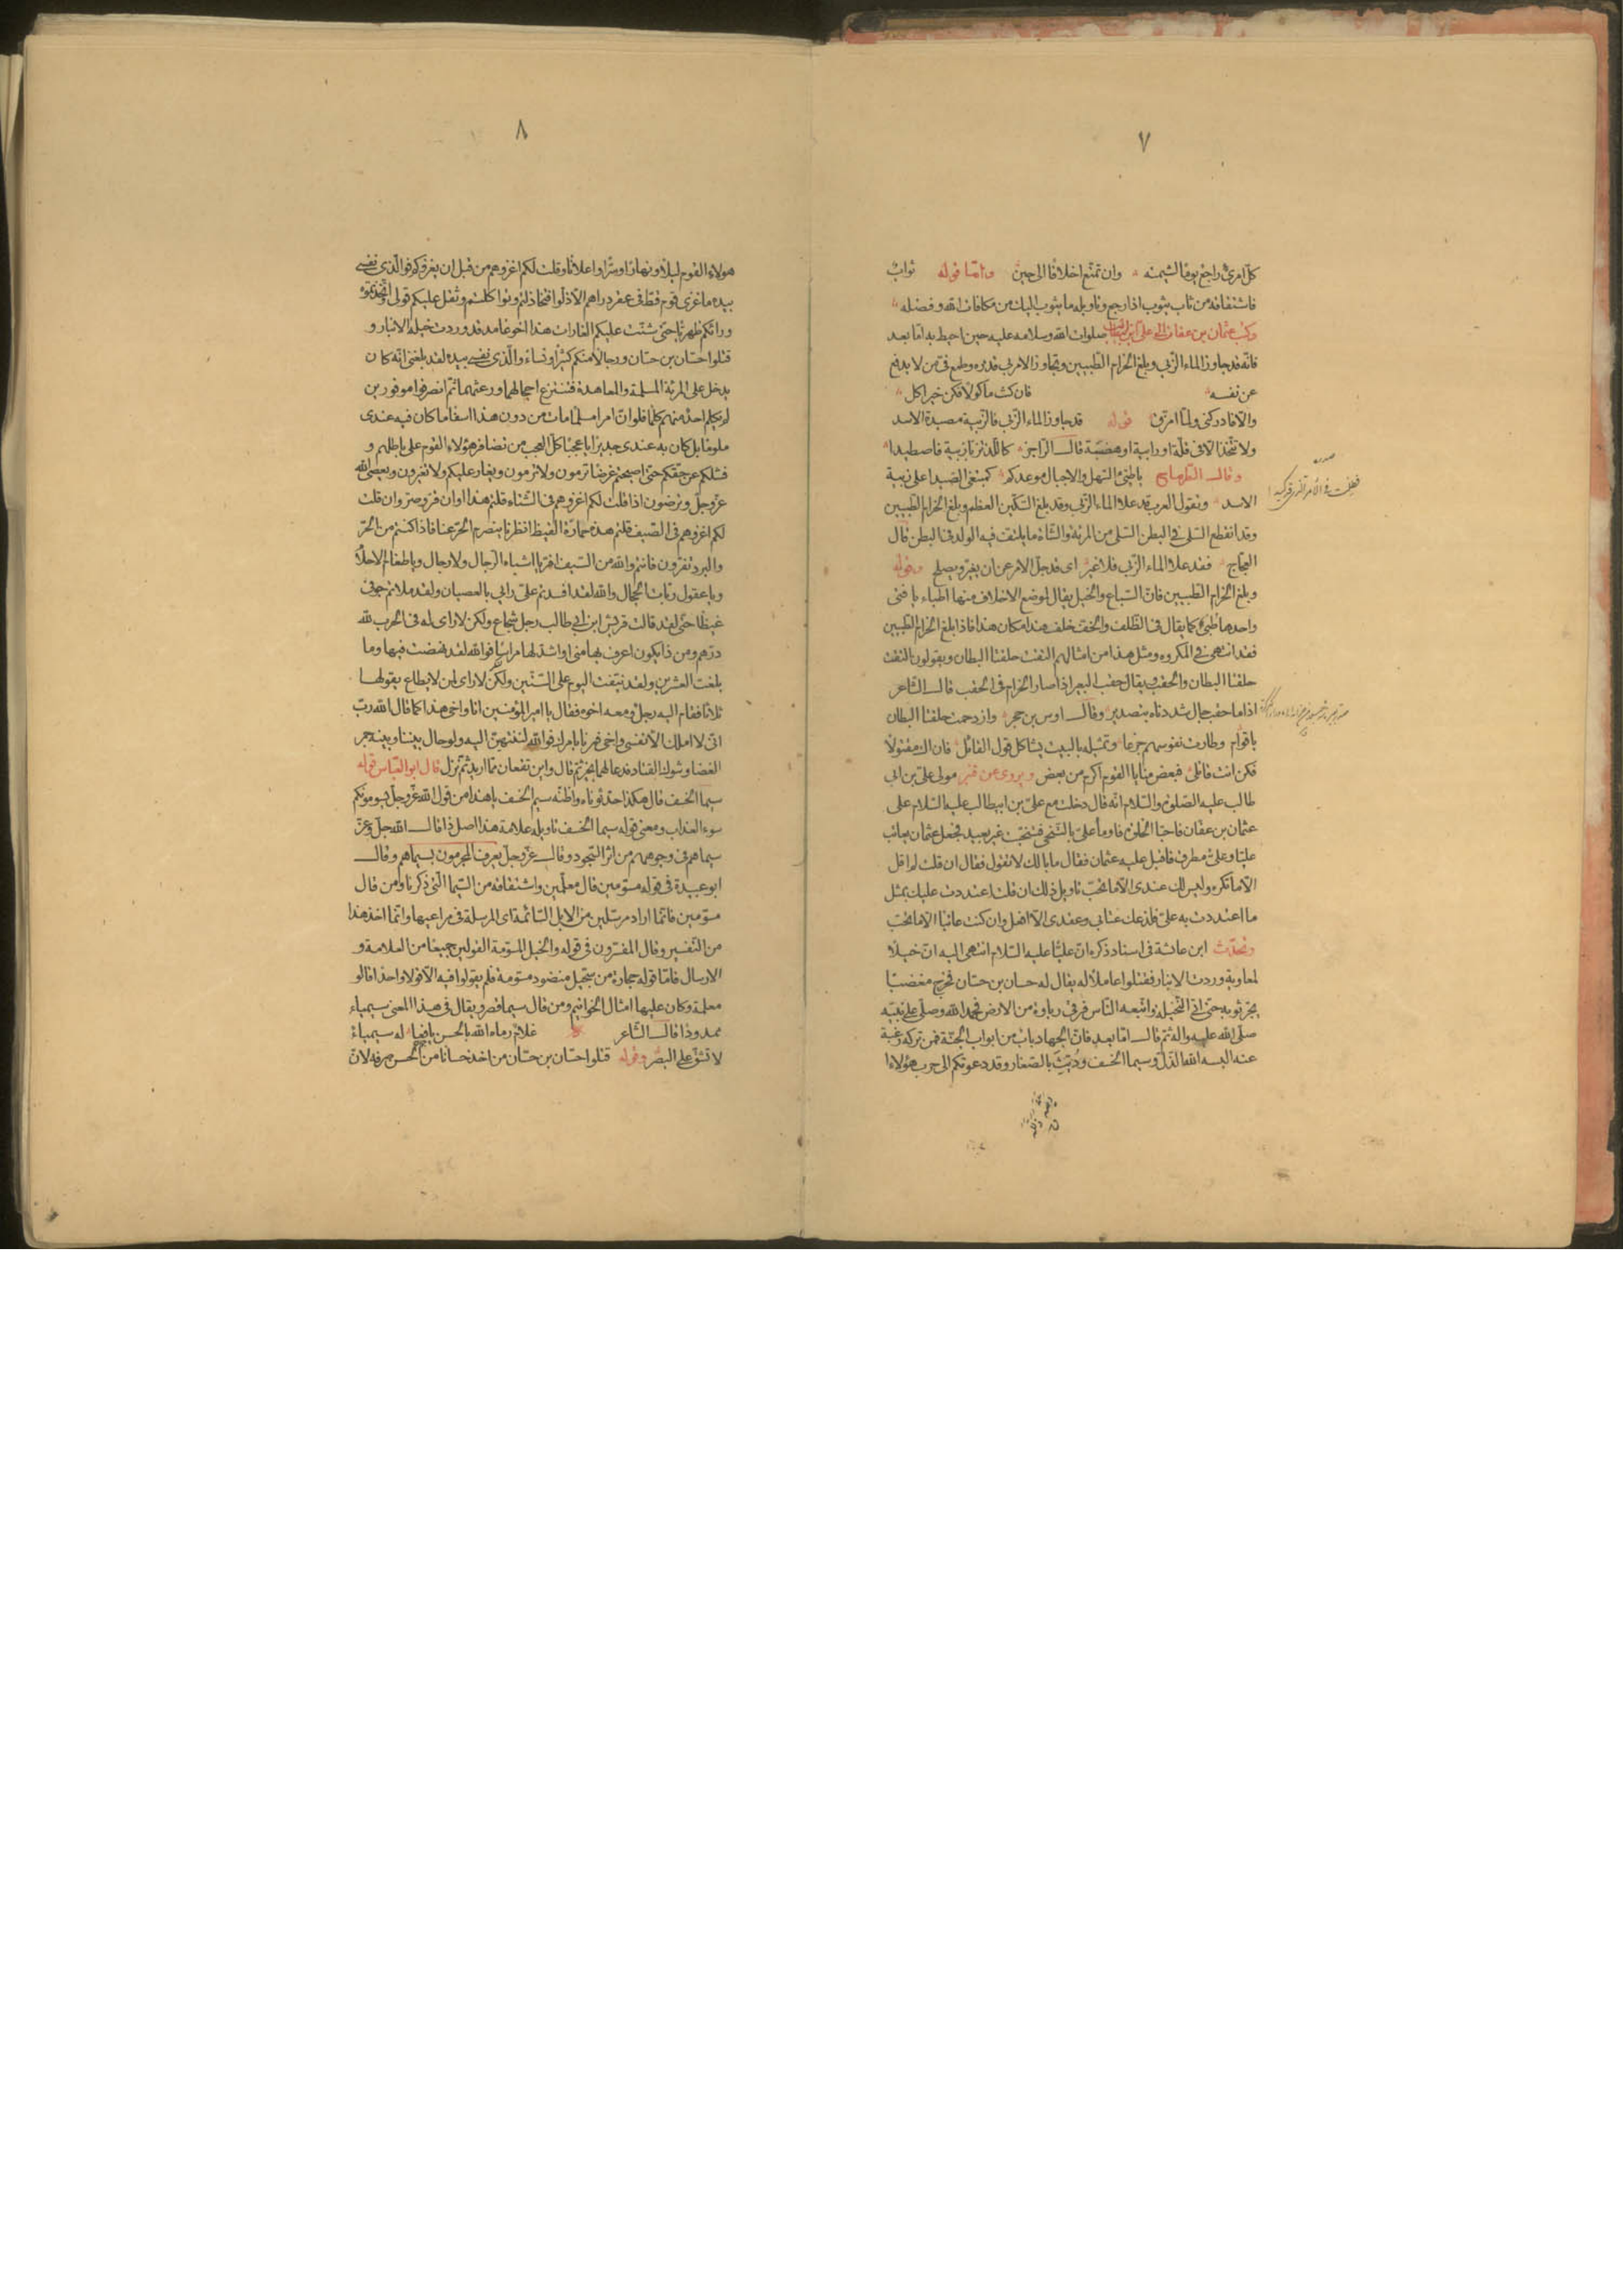 ٧
كل امرئ راجع يوما لشيمته وان تمتع اخلاقا الى حين واما قوله ثواب
فاشتقاقه من ثاب يثوب اذا رجع وتاويله ما يثوب اليك من مكافات الله وفضله
وكتب عثمان بن عفان الى على بن ابيطالب صلوات الله وسلامه عليه حين احيط به اما بعد
فانه قد جاوز الماء الزبى وبلغ الحزام الطبيين وتجاوز الامر بى قدره وطمع فى من لا يدفع
عن نفسه فان كنت ماكولا فكن خير اكل
والا فادركنى ولما امزق قوله قد جاوز الماء الزبى فالزبية مصيدة الاسد
ولا تتخذ الا فى قلة او رابية او هضبة قال الراجز كاللذ تزبا زبية فاصطيدا
وقال الطرماح يا طيئ السهل والاجبال موعدكم كمبتغى الصيد اعلى زبية
الاسد وتقول العرب قد علا الماء الزبى وقد بلغ السكين العظم وبلغ الحزام الطبيين
وقد انقطع السلى فى البطن السلى من المرئة والشاة ما يلتف فيه الولد فى البطن قال
العجاج فقد علا الماء الزبى فلا غير اى قد جل الامر عن ان يغير ويصلح وقوله
وبلغ الحزام الطبيين فان السباع والخيل يقال لموضع الاخلاف منها اطباء يا فتى
واحدها طبى كما يقال فى الظلف والخف خلف هذا مكان هذا فاذا بلغ الحزام الطبيين
فقد انتهى فى المكروه ومثل هذا من امثالهم التقت حلقتا البطان ويقولون التقت
حلقتا البطان والحقب ويقال حقب البعير اذا صار الحزام فى الحقب قال الشاعر
اذا ما حقب جال شددناه بتصدير وقال اوس بن حجر وازدحمت حلقتا البطان
باقوام وطارت نفوسهم جزعا وتمثيله بالبيت يشاكل قول القائل فان اك مقتولا
فكن انت قاتلى فبعض منايا القوم اكرم من بعض ويروى عن قنبر مولى على بن ابى
طالب عليه الصلوة والسلام انه قال دخلت مع على بن ابيطالب عليه السلام على
عثمان بن عفان فاحبا الخلوة فاومأ على بالتنحى فتنحيت غير بعيد فجعل عثمان يعاتب
عليا وعلى مطرق فاقبل عليه عثمان فقال ما بالك لا تقول فقال ان قلت لم اقل
الا ما تكره وليس لك عندى الا ما تحب تاويل ذلك ان قلت اعتددت عليك بمثل
ما اعتددت به على فلذعك عتابى وعقدى الا افعل وان كنت عاتبا الا ما تحب
وتحدث ابن عائشة فى اسناد ذكره ان عليا عليه السلام انتهى اليه ان خيلا
لمعاوية وردت الانبار فقتلوا عاملا له يقال له حسان بن حسان فخرج مغضبا
يجر ثوبه حتى اتى النخيلة واتبعه الناس فرقى رباوة من الارض فحمد الله وصلى على نبيه
صلى الله عليه واله ثم قال اما بعد فان الجهاد باب من ابواب الجنة فمن تركه رغبة
عنه البسه الله الذل وسيما الخسف وديث بالصغار وقد دعوتكم الى حرب هؤلاء
٨
هولاء القوم ليلا ونهارا وسرا واعلانا وقلت لكم اغزوهم من قبل ان يغزوكم فوالذى نفسى
بيده ما غزى قوم قط فى عقر دراهم الا ذلوا فتخاذلتم وتواكلتم وثقل عليكم قولى واتخذتموه
ورائكم ظهريا حتى شنت عليكم الغارات هذا اخو غامد قد وردت خيله الانبار و
قتلوا حسان بن حسان ورجالا منكم كثيرا ونساء والذى نفسى بيده لقد بلغنى انه كان
يدخل على المرئة المسلمة والمعاهدة فتنتزع احجالهما ورعثهما ثم انصرفوا موفورين
لم يكلم احد منهم كلما فلو ان امرا مسلما مات من دون هذا اسفا ما كان فيه عندى
ملوما بل كان به عندى جديرا يا عجبا كل العجب من تضافر هؤلاء القوم على باطلهم و
فشلكم عن حقكم حتى اصبحتم غرضا ترمون ولا ترمون ويغار عليكم ولا تغيرون ويعصى الله
عز وجل وترضون اذا قلت لكم اغزوهم فى الشتاء قلتم هذا اوان قر وصر وان قلت
لكم اغزوهم فى الصيف قلتم هذه حمارة القيظ انظرنا ينصرم الحر عنا فاذا كنتم من الحر
والبرد تفرون فانتم والله من السيف افر يا اشباه الرجال ولا رجال ويا طغام الاحلام
ويا عقول ربات الحجال والله لقد افسدتم على رايى بالعصيان ولقد ملاتم جوفى
غيظا حتى لقد قالت قريش ابن ابى طالب رجل شجاع ولكن لا راى له فى الحرب لله
درهم ومن ذا يكون اعرف بها منى او اشد لها مراسا فوالله لقد نهضت فيها وما
بلغت العشرين ولقد نيفت اليوم على الستين ولكن لا راى لمن لا يطاع يقولها
ثلاثا فقام اليه رجل ومعه اخوه فقال يا امير المؤمنين انا واخى هذا كما قال الله رب
انى لا املك الا نفسى واخى فمرنا بامرك فوالله لننتهين اليه ولو حال بيننا وبينه جمر
الغضا وشوك القتاد فدعا لهما بخير ثم قال واين تقعان مما اريد ثم نزل قال ابو العباس قوله
سيما الخسف قال هكذا حدثوناه واظنه سيم الخسف يا هذا من قول الله عز وجل يسومونكم
سوء العذاب ومعنى قوله سيما الخسف تاويله علامة هذا اصل ذا قال الله جل وعز
سيماهم فى وجوههم من اثر السجود وقال عز وجل يعرف المجرمون بسيماهم وقال
ابو عبيدة فى قوله مسومين قال معلمين واشتقاقه من السيما التى ذكرنا ومن قال
مسومين فانما اراد مرسلين من الابل السائمة اى المرسلة فى مراعيها وانما اخذ هذا
من التفسير وقال المفسرون فى قوله والخيل المسومة القولين جميعا من العلامة و
الارسال فاما قوله حجارة من سجيل منضود مسومة فلم يقولوا فيه الا قولا واحدا قالو
معلمة وكان عليها امثال الخواتيم ومن قال سيما قصر ويقال فى هذا المعنى سيمياء
ممدود قال الشاعر غلام رماه الله بالحسن يافعا له سيمياء
لا تشق على البصر وقوله قتلوا حسان بن حسان من اخذ حسانا من الحسن صرفه لان